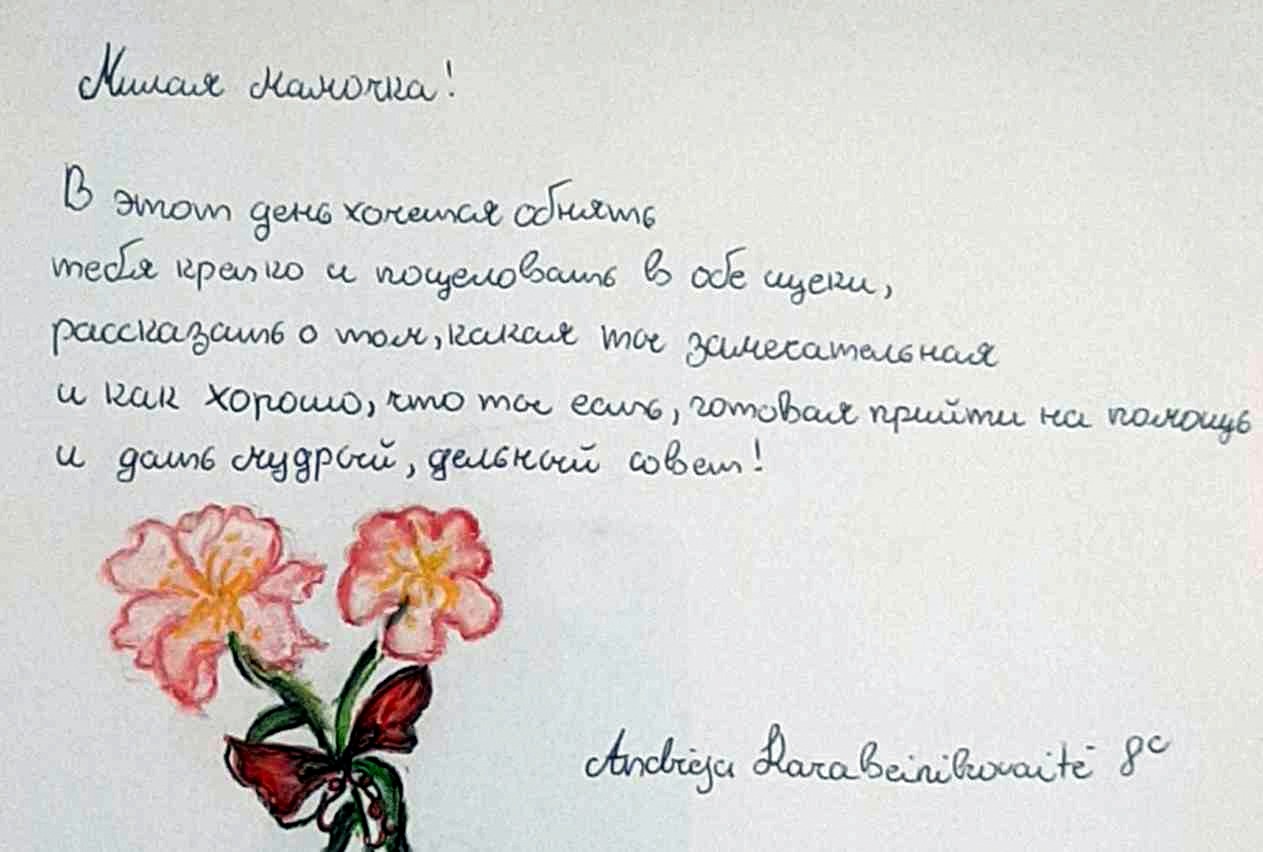 Милая мамочка!
В этот день хочется обнять
тебя крепко и поцеловать в обе щеки,
рассказать о том, какая ты замечательная
и как хорошо, что ты есть, готовая прийти на помощь
и дать мудрый, дельный совет!
Andrėja Karabeinikovaitė 8c